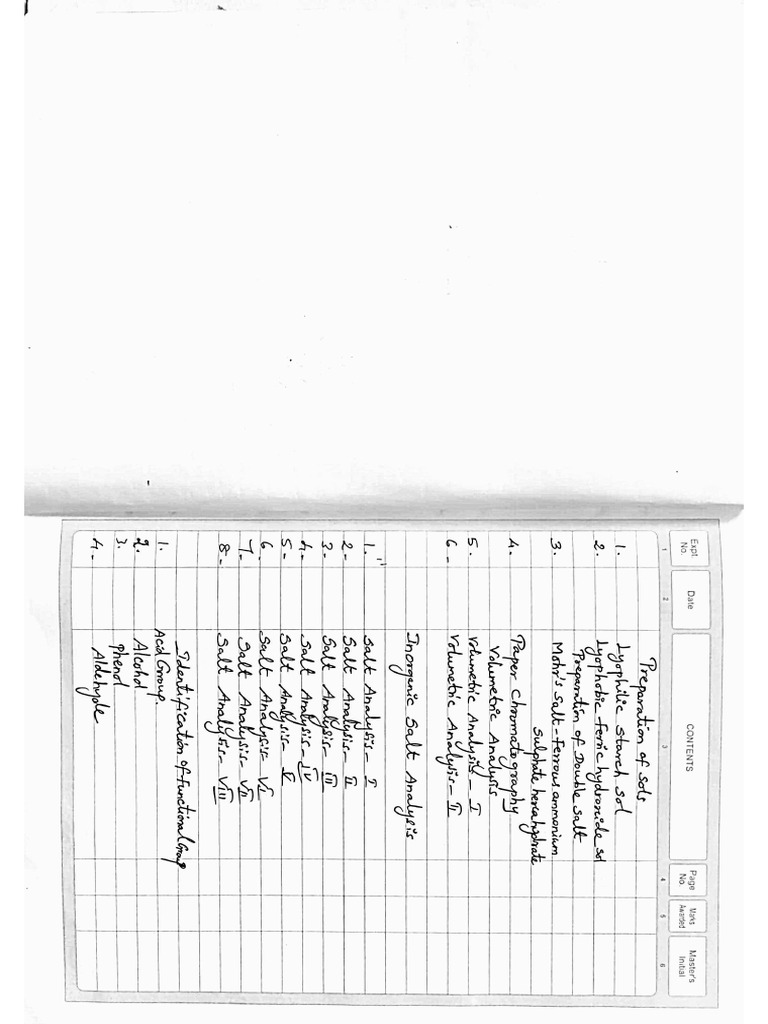 Expt. No. Date CONTENTS Page No. Marks Awarded Master's Initial
1 2 3 4 5 6
Preparation of Sols
1. Lyophilic Starch sol
2. Lyophobic Ferric hydroxide sol
Preparation of Double Salt
3. Mohr's Salt - Ferrous ammonium
Sulphate hexahydrate
4. Paper Chromatography
Volumetric Analysis
5. Volumetric Analysis - I
6. Volumetric Analysis - II
Inorganic Salt Analysis
1. Salt Analysis - I
2. Salt Analysis - II
3. Salt Analysis - III
4. Salt Analysis - IV
5. Salt Analysis - V
6. Salt Analysis - VI
7. Salt Analysis - VII
8. Salt Analysis - VIII
Identification of Functional Group
1. Acid Group
2. Alcohol
3. Phenol
4. Aldehyde